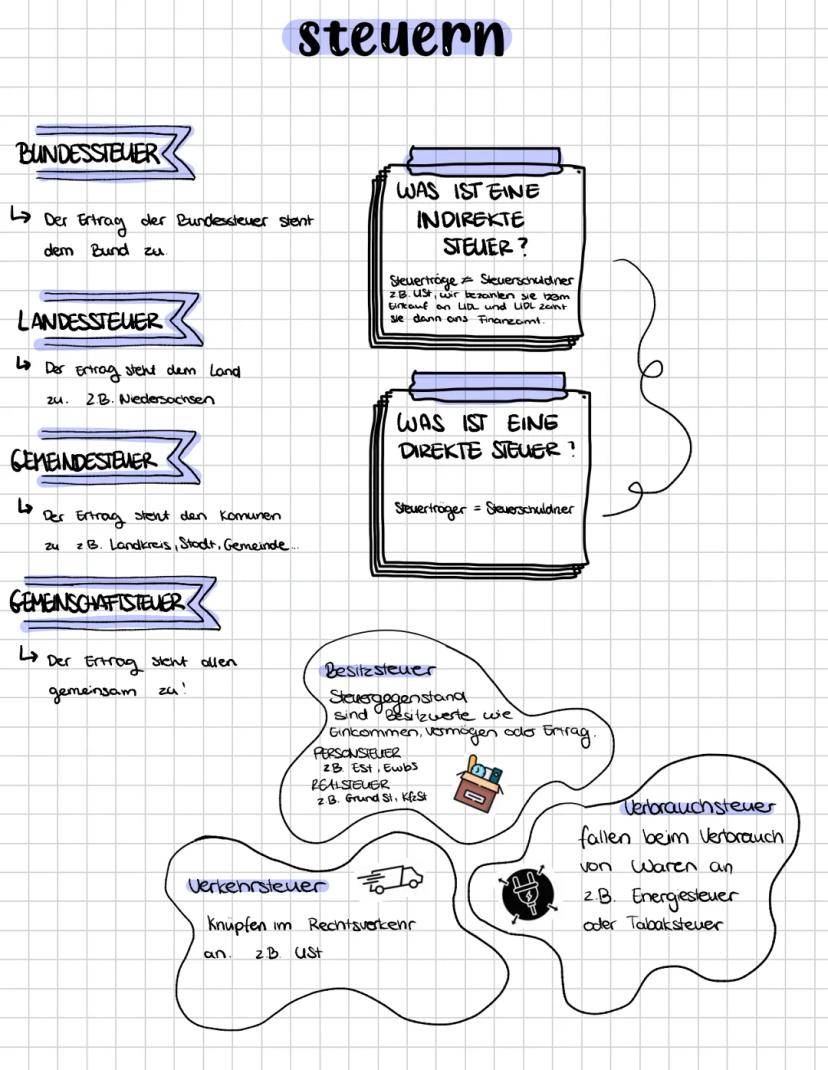 steuern
BUNDESSTEUER
↳ Der Ertrag der Bundessteuer steht
dem Bund zu.
LANDESSTEUER
↳ Der Ertrag steht dem Land
zu. z.B. Niedersachsen
GEMEINDESTEUER
↳ Der Ertrag steht den Komunen
zu z.B. Landkreis, Stadt, Gemeinde...
GEMEINSCHAFTSTEUER
↳ Der Ertrag steht allen
gemeinsam zu!
WAS IST EINE
INDIREKTE
STEUER?
Steuerträge ≠ Steuerschuldner
z.B. USt, wir bezahlen sie beim
Einkauf an LIDL und LIDL zahlt
sie dann ans Finanzamt.
WAS IST EINE
DIREKTE STEUER?
Steuerträger = Steuerschuldner
Besitzsteuer
Steuergegenstand
sind Besitzwerte wie
Einkommen, Vermögen oder Ertrag.
PERSONSTEUER
z.B. ESt, EwbS
REALSTEUER
z.B. Grund St, KfzSt
Verkehrsteuer
Knüpfen im Rechtsverkehr
an. z.B. USt
Verbrauchsteuer
fallen beim Verbrauch
von Waren an
z.B. Energiesteuer
oder Tabaksteuer